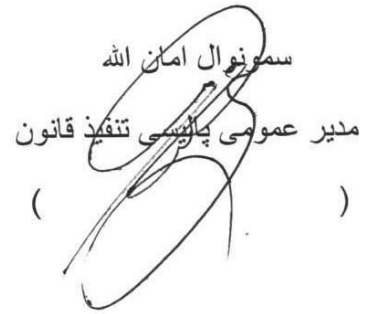 سمونوال امان الله
مدیر عمومی پالیسی تنفیذ قانون
( )